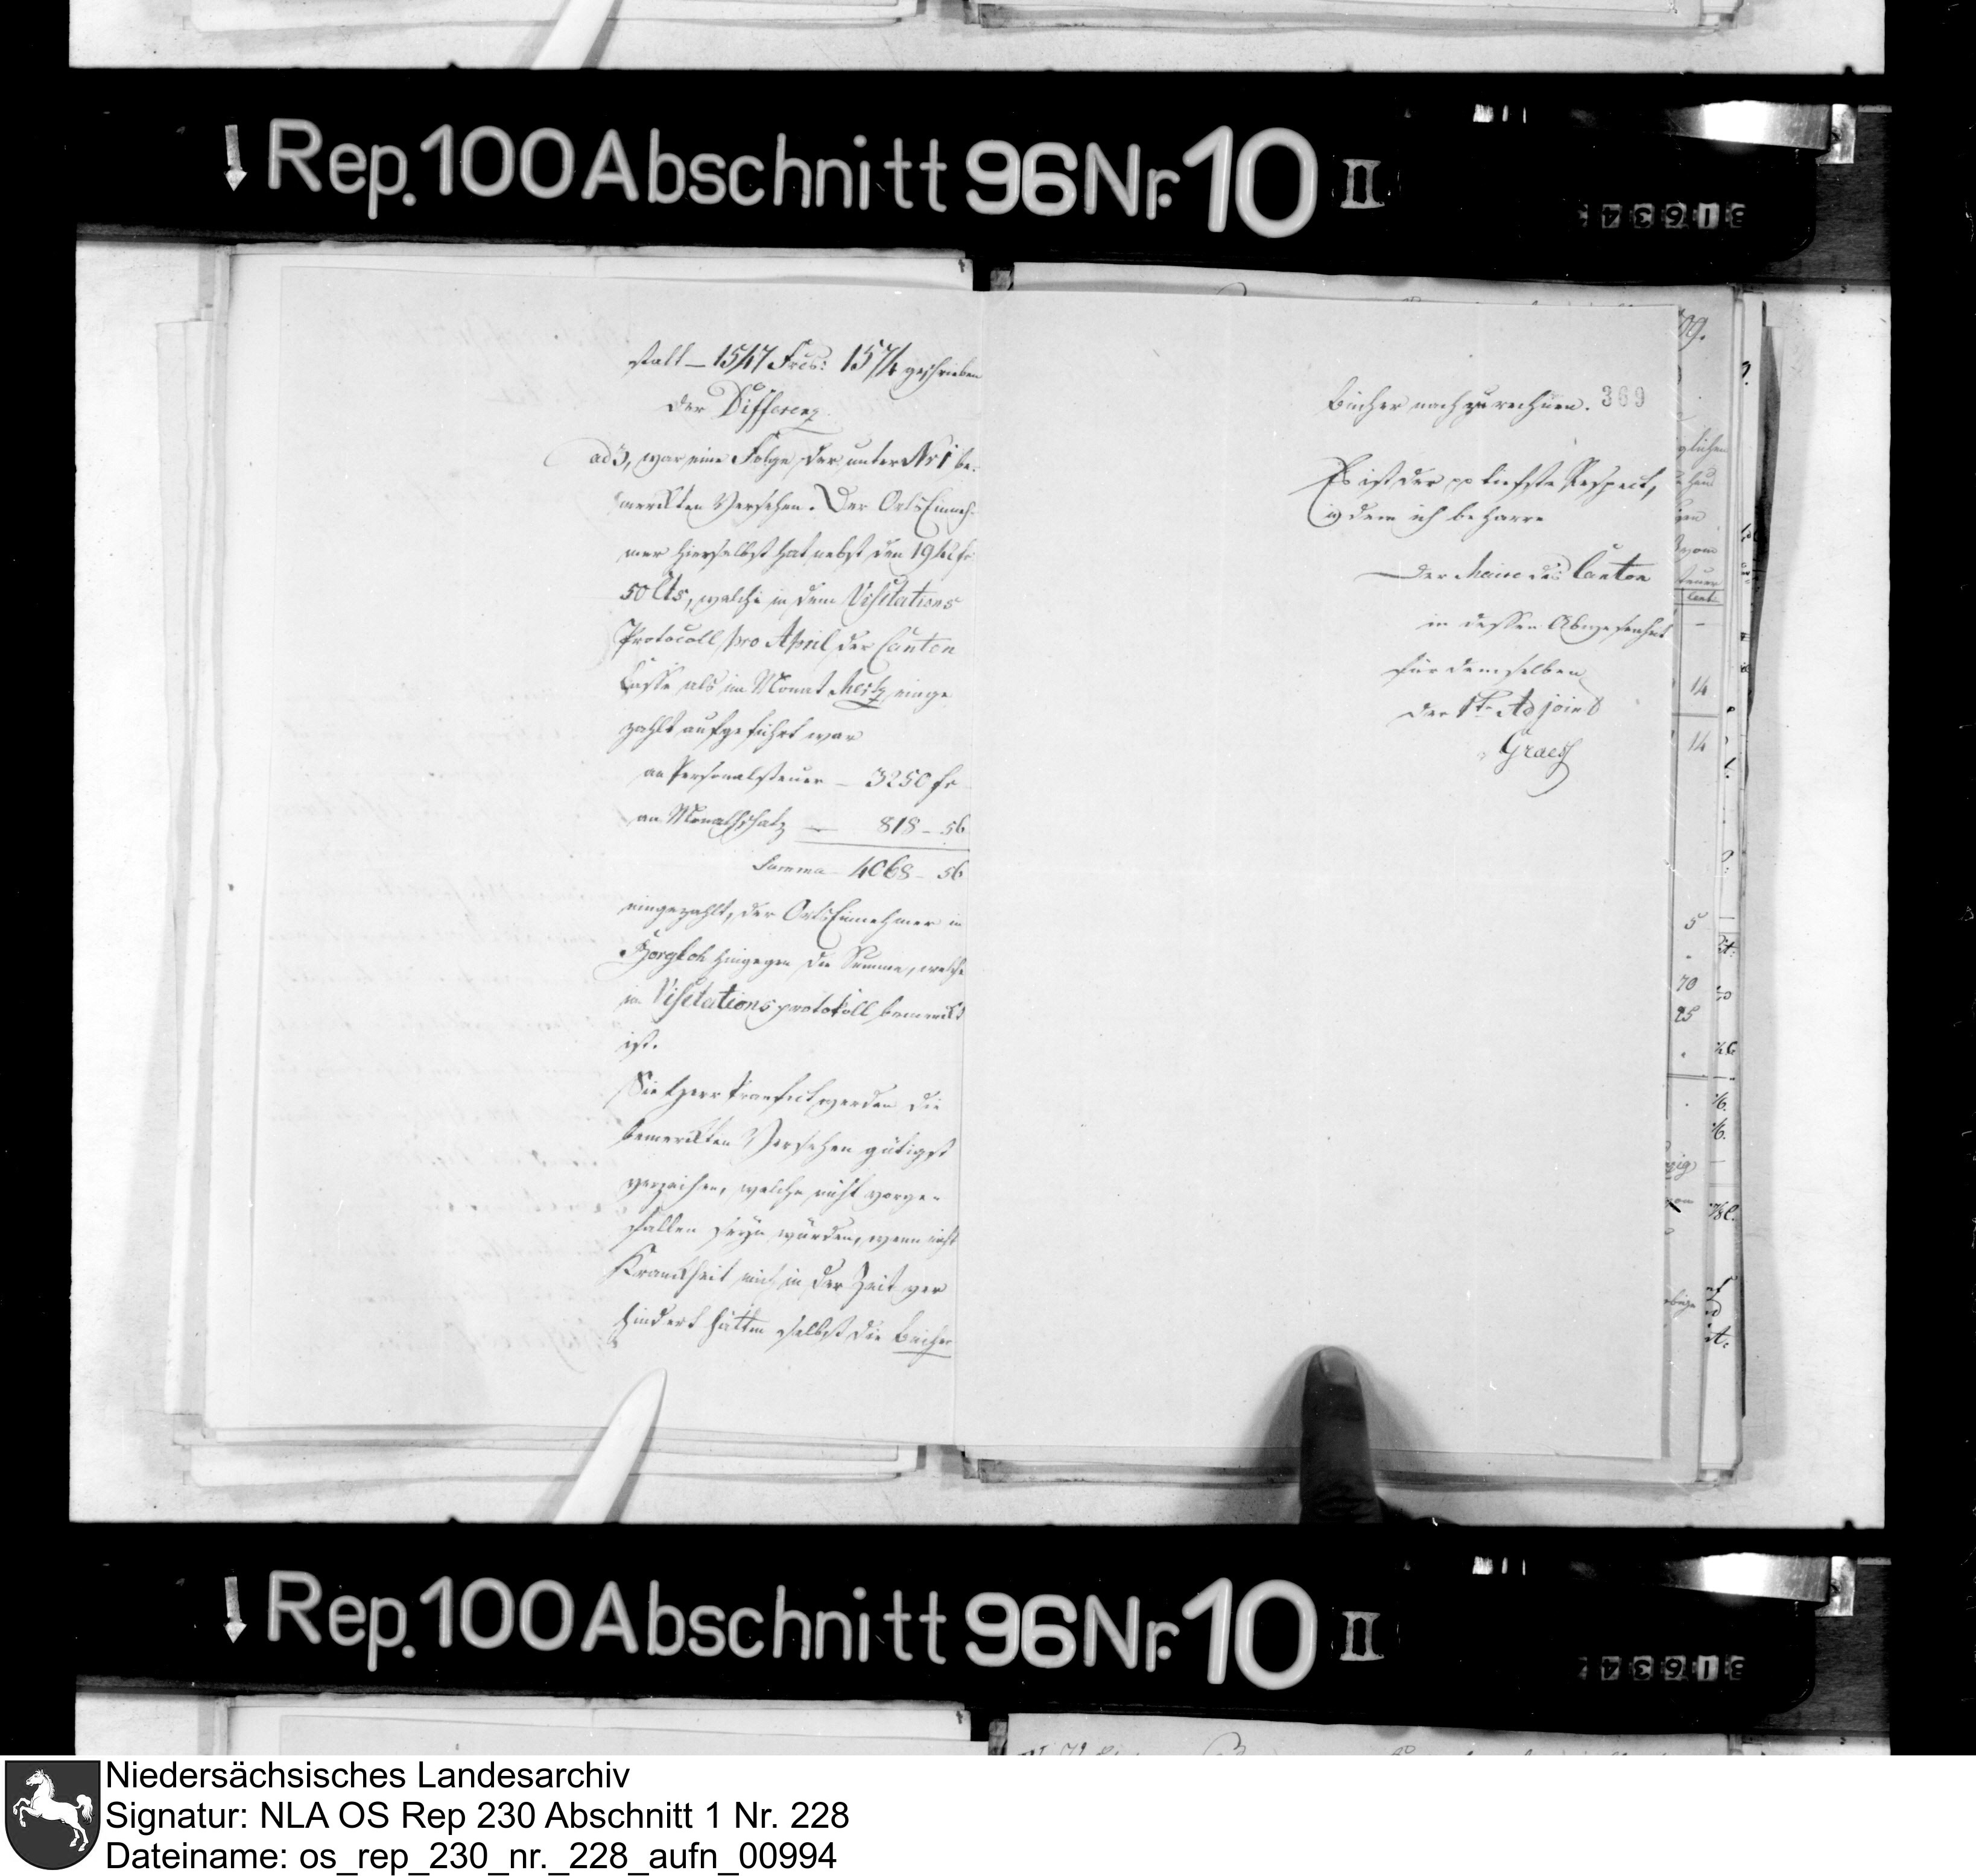 Rep. 100 Abschnitt 96 Nr. 10 II
31634
statt — 1547 Frcs: 1574 geschrieben
der Differenz.
ad 3, war eine Folge der unter No 1 be-
merckten Versehen. Der OrtsEinneh-
mer hierselbst hat nebst den 1942 fr
50 Cts, welche in dem Visitations
Protocoll pro April der Canton
Casse als im Monat Mertz einge
zahlt aufgeführt war
an Personalsteuer — 3250 fr
an Monathschatz — 818 - 56
Summa - 4068 - 56
eingezahlt, der OrtsEinnehmer in
Borgloh hingegen die Summe, welche
im Visitationsprotokoll bemerckt
ist.
Sie Herr Praefect werden die
bemerckten Versehen gütigst
verzeihen, welche nicht vorge-
fallen seyn würden, wenn nicht
Kranckheit mich in der Zeit ver
hindert hätte selbst die Bücher
369
Bücher nachzurechnen.
Es ist der pp tiefste Respect,
in dem ich beharre
Der Maire des Canton
in dessen Abwesenheit
für denselben
der 1te Adjoint
Graeff
Rep. 100 Abschnitt 96 Nr. 10 II
31634
Niedersächsisches Landesarchiv
Signatur: NLA OS Rep 230 Abschnitt 1 Nr. 228
Dateiname: os_rep_230_nr._228_aufn_00994